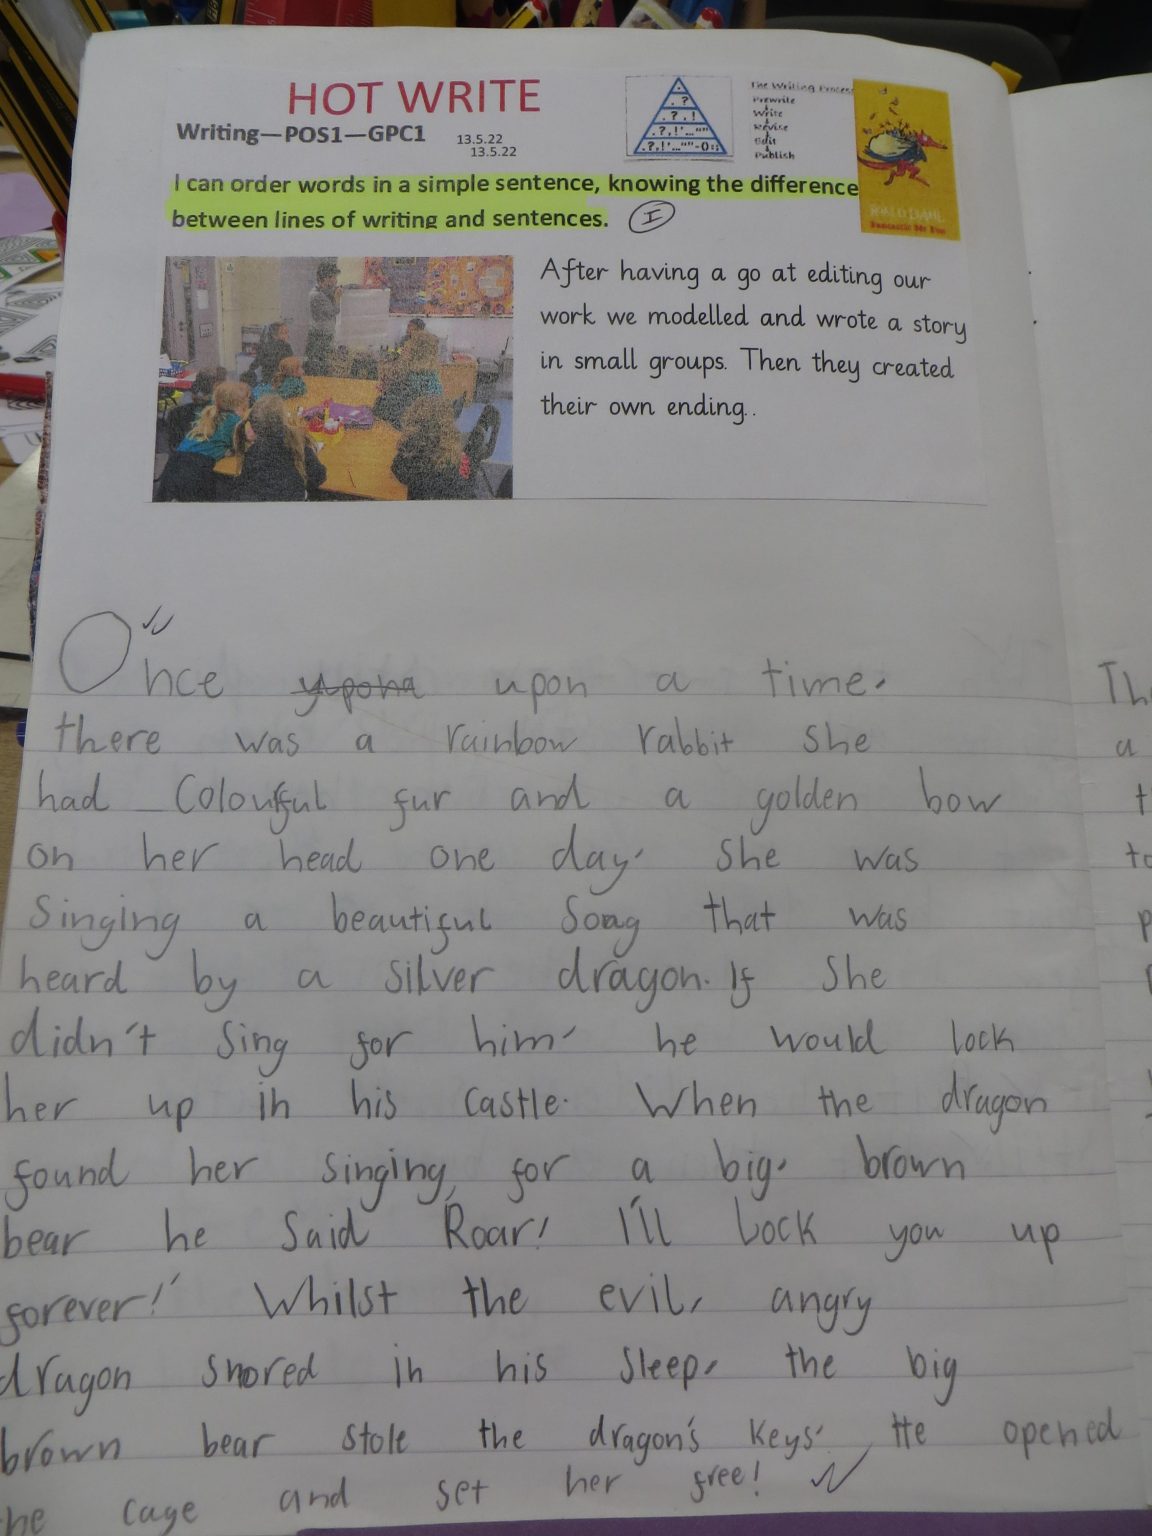 HOT WRITE
Writing—POS1—GPC1
13.5.22
13.5.22
The Writing Process
Prewrite
Write
Revise
Edit
Publish
.
. ?
. ? , !
. ? , ! ' ... " "
. ? , ! ' ... " " - () : ;
ROALD DAHL
Fantastic Mr Fox
I can order words in a simple sentence, knowing the difference
between lines of writing and sentences. I
After having a go at editing our
work we modelled and wrote a story
in small groups. Then they created
their own ending..
Once upon a time,
there was a rainbow rabbit she
had Colourful fur and a golden bow
on her head one day, she was
Singing a beautiful Song that was
heard by a silver dragon. If She
didn't sing for him, he would lock
her up in his castle. When the dragon
found her singing, for a big, brown
bear he said 'Roar! I'll Lock you up
forever!' Whilst the evil, angry
dragon snored in his sleep, the big
brown bear stole the dragon's keys. He opened
he cage and set her free!
Th
a
t
to
p